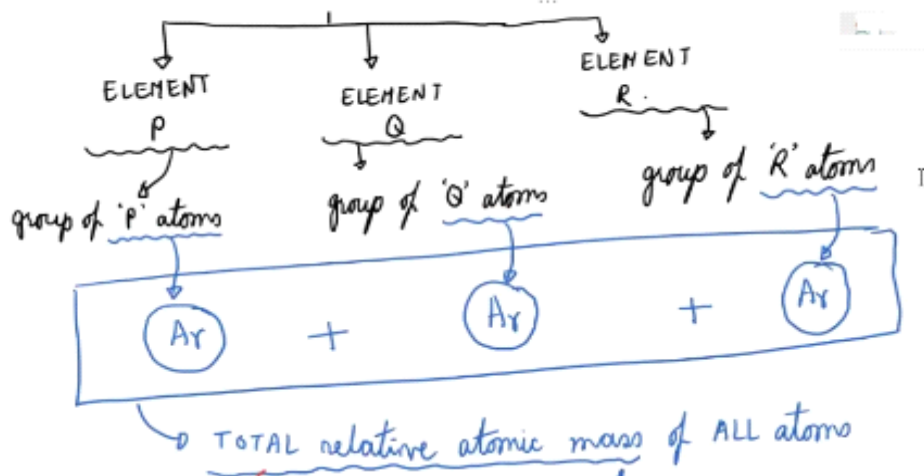 ELEMENT ELEMENT ELEMENT
P Q R.
group of 'P' atoms group of 'Q' atoms group of 'R' atoms
Ar + Ar + Ar
TOTAL relative atomic mass of ALL atoms